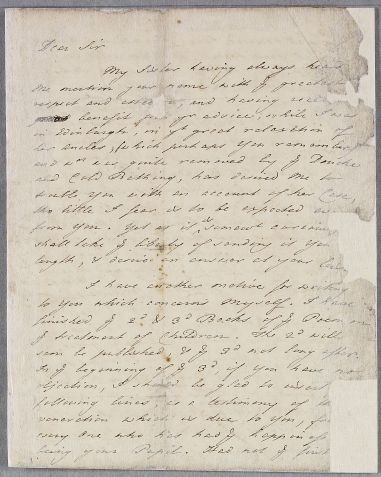 Dear Sir
My Sister having always heard
me mention your name with ye greatest
respect and and having
benefit from yr advice, while I was
in Edinburgh, in ye great relaxation of
her ancles, which perhaps you remember,
and was quite removed by ye Douche
and Cold Bathing, has desired me to
trouble you with an account of her Case,
tho little I fear is to be expected
from you. Yet as it is
shall take ye liberty of sending it you
length, & desire an answer at your
I have another motive for writing
to you which concerns myself. I have
finished ye 2d & 3d Books of ye Poem on
ye treatment of Children. The 2d will
soon be published & ye 3d not long after.
At ye beginning of ye 3d, if you have no
objection, I should be glad to insert
following lines, as a testimony of
veneration which is due to you, from
every One who has had ye happiness
being your Pupil. Had not ye first